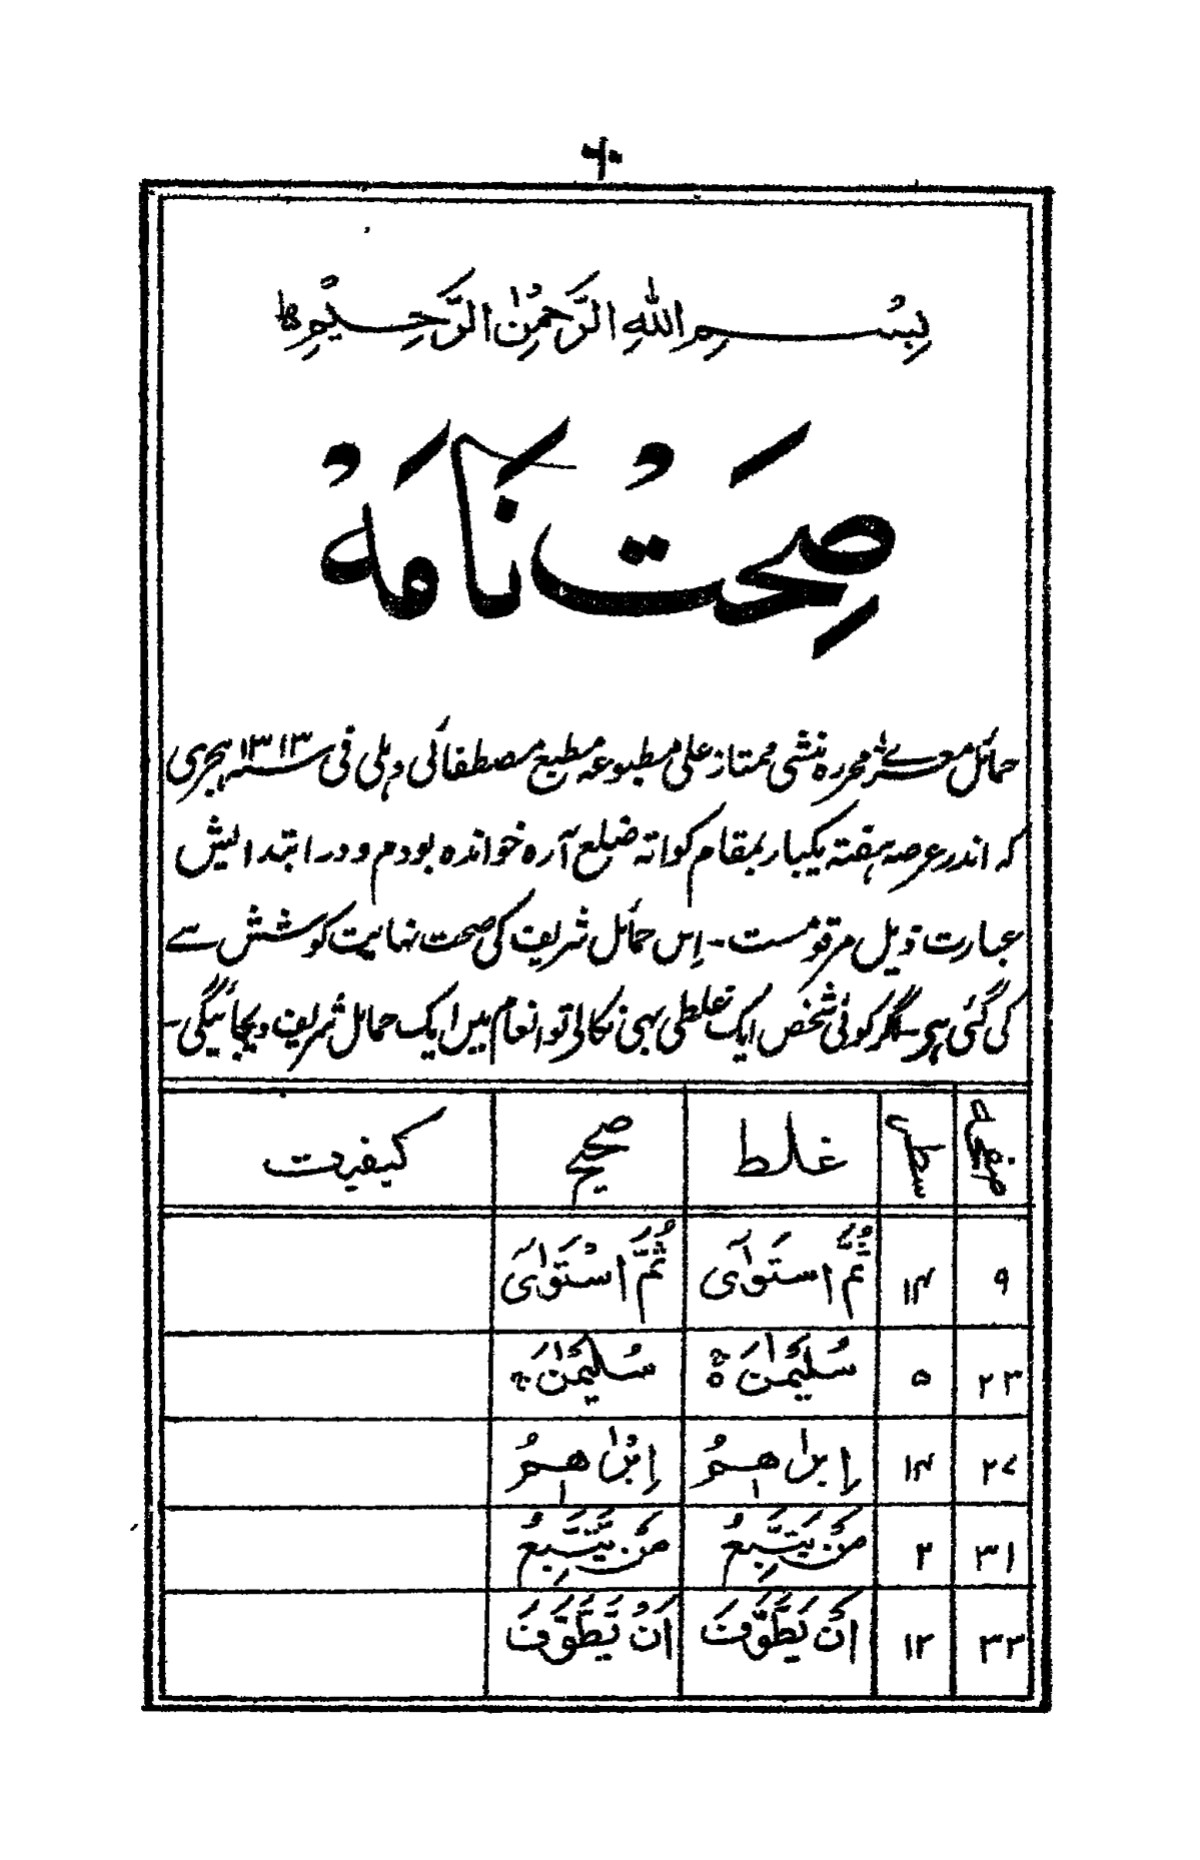 ۶۰
بِسْمِ اللهِ الرَّحْمٰنِ الرَّحِيْمِ ط
صِحَتْ نَامَهْ
حمائل معرےٰ محررہ منشی ممتاز علی مطبوعہ مطبع مصطفائی دہلی فی سنہ ۱۳۱۳ ہجری
کہ اندر عرصہ ہفتہ یکبار بمقام کواتہ ضلع آرہ خواندہ بودم و در ابتدا الیش
عبارت ذیل مرقومست - اِس حمائل شریف کی صحت نہایت کوشش سے
کی گئی ہی - مگر کوئی شخص ایک غلطی بھی نکالی تو انعام میں ایک حمائل شریف دیجائیگی -
صفحہ سطر غلط صحیح کیفیت
۹ ۱۴ ثُمَّ استَوٰٓى ثُمَّ اسْتَوٰٓى
۲۳ ۵ سُلَيْمٰنَ ۵ ج سُلَيْمٰنَ ج
۲۷ ۱۴ اِبرٰاهٖمُ اِبْرٰاهٖمُ
۳۱ ۲ مَنْ يَتَّبِعُ مَنْ يَّتَّبِعُ
۳۳ ۱۲ اَنْ يَطَّوَّفَ اَنْ يَّطَّوَّفَ